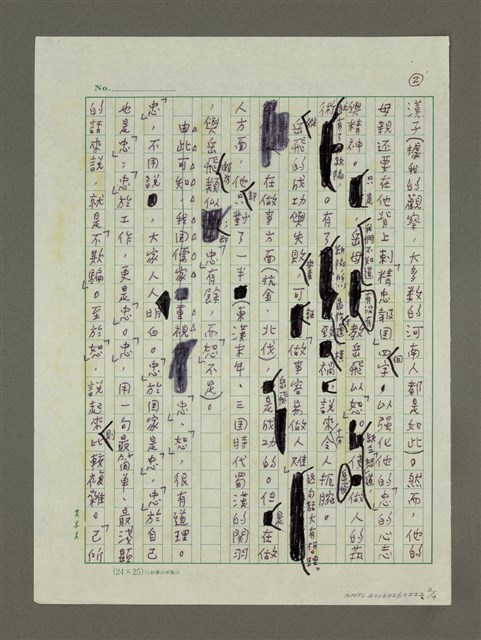 No.
②
漢子(據我的觀察，大多數的河南人都是如此)。然而，他的
母親還要在他背上刺「精忠報國」四個字。以強化他的忠的心志
與精神。只是，我們不知道岳母有沒有教岳飛以恕
術。有了 致禍。說來令人扼腕。
從岳飛的成功與失敗，可證做事容易做人難這句話大有道理。
在做事方面(抗金、北伐)，岳飛是成功的。但是在做
人方面，他只對了一半(東漢末年、三國時代蜀漢的關羽
，與岳飛類似，即忠有餘，而恕不足)。
由此可知，我國儒家重視「忠、恕」，很有道理。
忠，不用說，大家人人明白。忠於國家是忠，忠於自己
也是忠，忠於工作，更是忠。忠，用一句最簡單、最淺顯
的話來說，就是不欺騙。至於恕，說起來比較複雜。己所
(24×25)
NMTL20160260222 2/4